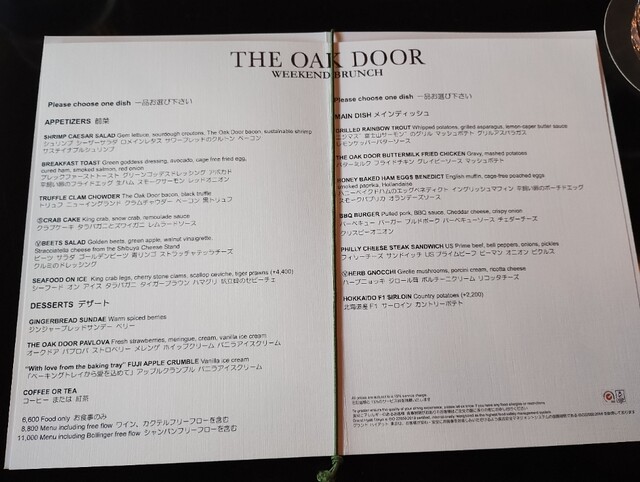 THE OAK DOOR
WEEKEND BRUNCH
Please choose one dish 一品お選び下さい
APPETIZERS 前菜
SHRIMP CAESAR SALAD Gem lettuce, sourdough croutons, The Oak Door bacon, sustainable shrimp
シュリンプ シーザーサラダ ロメインレタス サワーブレッドのクルトン ベーコン
サステイナブルシュリンプ
BREAKFAST TOAST Green goddess dressing, avocado, cage free fried egg,
cured ham, smoked salmon, red onion
ブレックファーストトースト グリーンゴッデスドレッシング アボカド
平飼い卵のフライドエッグ 生ハム スモークサーモン レッドオニオン
TRUFFLE CLAM CHOWDER The Oak Door bacon, black truffle
トリュフ ニューイングランド クラムチャウダー ベーコン 黒トリュフ
CRAB CAKE King crab, snow crab, remoulade sauce
クラブケーキ タラバガニとズワイガニ レムラードソース
BEETS SALAD Golden beets, green apple, walnut vinaigrette,
Stracciatella cheese from the Shibuya Cheese Stand
ビーツ サラダ ゴールデンビーツ 青リンゴ ストラッチャテッラチーズ
クルミのドレッシング
SEAFOOD ON ICE King crab legs, cherry stone clams, scallop ceviche, tiger prawns (+4,400)
シーフード オン アイス タラバガニ タイガープラウン ハマグリ 帆立貝のセビーチェ
DESSERTS デザート
GINGERBREAD SUNDAE Warm spiced berries
ジンジャーブレッドサンデー ベリー
THE OAK DOOR PAVLOVA Fresh strawberries, meringue, cream, vanilla ice cream
オークドア パブロバ ストロベリー メレンゲ ホイップクリーム バニラアイスクリーム
"With love from the baking tray" FUJI APPLE CRUMBLE Vanilla ice cream
「ベーキングトレイから愛を込めて」アップルクランブル バニラアイスクリーム
COFFEE OR TEA
コーヒー または 紅茶
6,600 Food only お食事のみ
8,800 Menu including free flow ワイン、カクテルフリーフローを含む
11,000 Menu including Bollinger free flow シャンパンフリーフローを含む
Please choose one dish 一品お選び下さい
MAIN DISH メインディッシュ
GRILLED RAINBOW TROUT Whipped potatoes, grilled asparagus, lemon-caper butter sauce
ニジマス "富士山サーモン"のグリル マッシュポテト グリルアスパラガス
レモンケッパーバターソース
THE OAK DOOR BUTTERMILK FRIED CHICKEN Gravy, mashed potatoes
バターミルク フライドチキン グレイビーソース マッシュポテト
HONEY BAKED HAM EGGS BENEDICT English muffin, cage-free poached eggs
smoked paprika, Hollandaise
ハニーベイクドハムのエッグベネディクト イングリッシュマフィン 平飼い卵のポーチドエッグ
スモークパプリカ オランデーズソース
BBQ BURGER Pulled pork, BBQ sauce, Cheddar cheese, crispy onion
バーベキュー バーガー プルドポーク バーベキューソース チェダーチーズ
クリスピーオニオン
PHILLY CHEESE STEAK SANDWICH US Prime beef, bell peppers, onions, pickles
フィリーチーズ サンドイッチ US プライムビーフ ピーマン オニオン ピクルス
HERB GNOCCHI Girolle mushrooms, porcini cream, ricotta cheese
ハーブニョッキ ジロール茸 ポルチーニクリーム リコッタチーズ
HOKKAIDO F1 SIRLOIN Country potatoes (+2,200)
北海道産 F1 サーロイン カントリーポテト